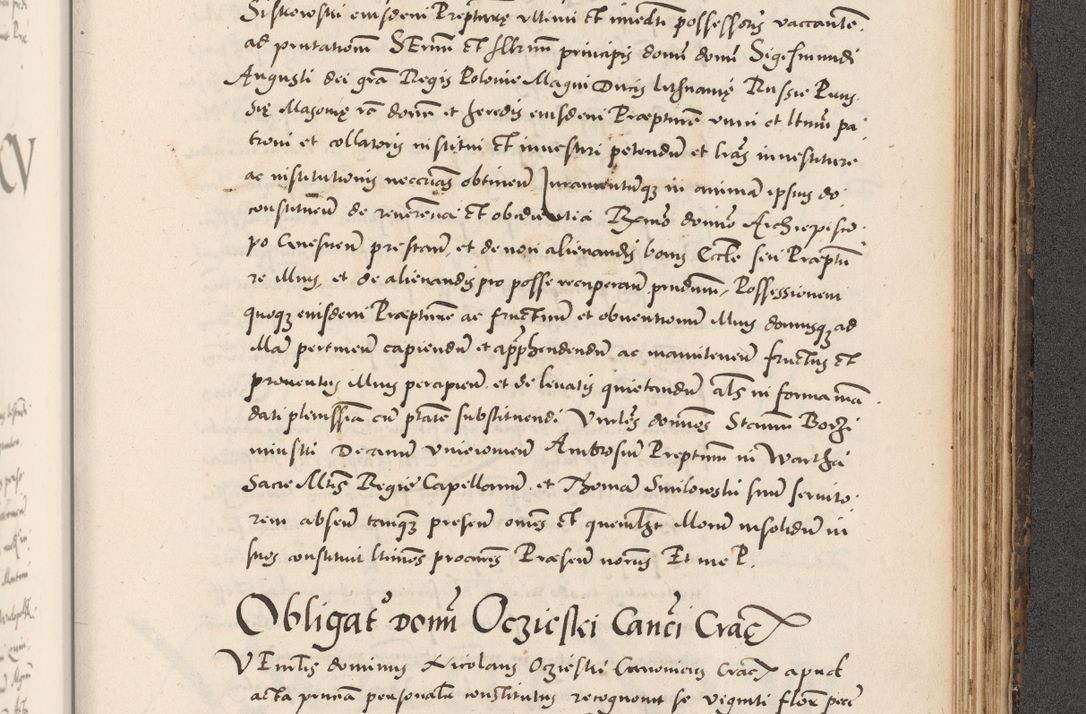 Siskowski eiusdem Prepture ultimi et imedti possessoris vaccante.
ad pntationem Sermi et Illrmi principis domi domi Sigismundi
Augusti dei gra Regis Polonie Magni Ducis Lithuanię Russie Prus
się Masovię etc domi et heredis eiusdem Præpture unici et ltmi pa
troni et collatoris institui et investiri petendum et lras investiture
ac institutionis neccrias obtinen Juramentumqz in animam ipsius do
constituen de reverencia et obediencia Rxmo domino Archiepisco
po Gnesnen prestan, et de non alienandis bonis Eccle seu Præptu
re illius, et de alienandis pro posse recuperan prndum, Possessionem
quoqz eiusdem Præpture ac fructuum et obventionum illius domusqz ad
illam pertinen capiendum et apprhendendum ac manutenen fructus et
proventus illius percipien, et de levatis quietandum als in forma man
dati plenissima cum ptate substituendi Vnbles dominos Stanum Borzi
minski Decanum Vnieiovien Ambrosium Preptum in Wartha
Sacre Mtis Regie Capellanum, et Thomam Smilowski suum servito
rem absen tanqz presen omes et quemlbt illorum insolidum in
suos constituit ltimos procures Præsen notrius Et me P.
Obligato domi Oczieski Canci Crac
VEnblis dominus Nicolaus Oczieski Canonicus Crac apud
acta prima personalr constitutus recognovit se viginti flor per